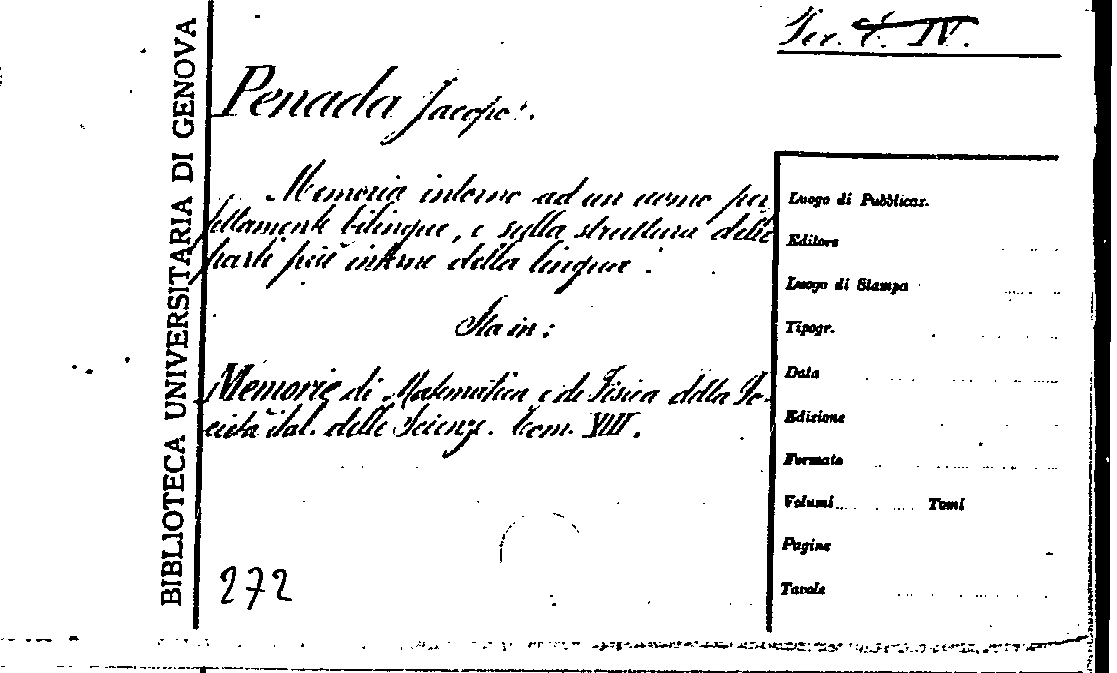 BIBLIOTECA UNIVERSITARIA DI GENOVA
Ser. IV.
Penada Jacopo.
Memoria intorno ad un uomo per
fettamente bilingue, e sulla struttura delle
parti più interne della lingua.
Sta in:
Memorie di Matematica e di Fisica della So-
cietà Ital. delle Scienze. Tom. VIII.
272
Luogo di Pubblicaz.
Editore
Luogo di Stampa
Tipogr.
Data
Edizione
Formato
Volumi Tomi
Pagine
Tavole